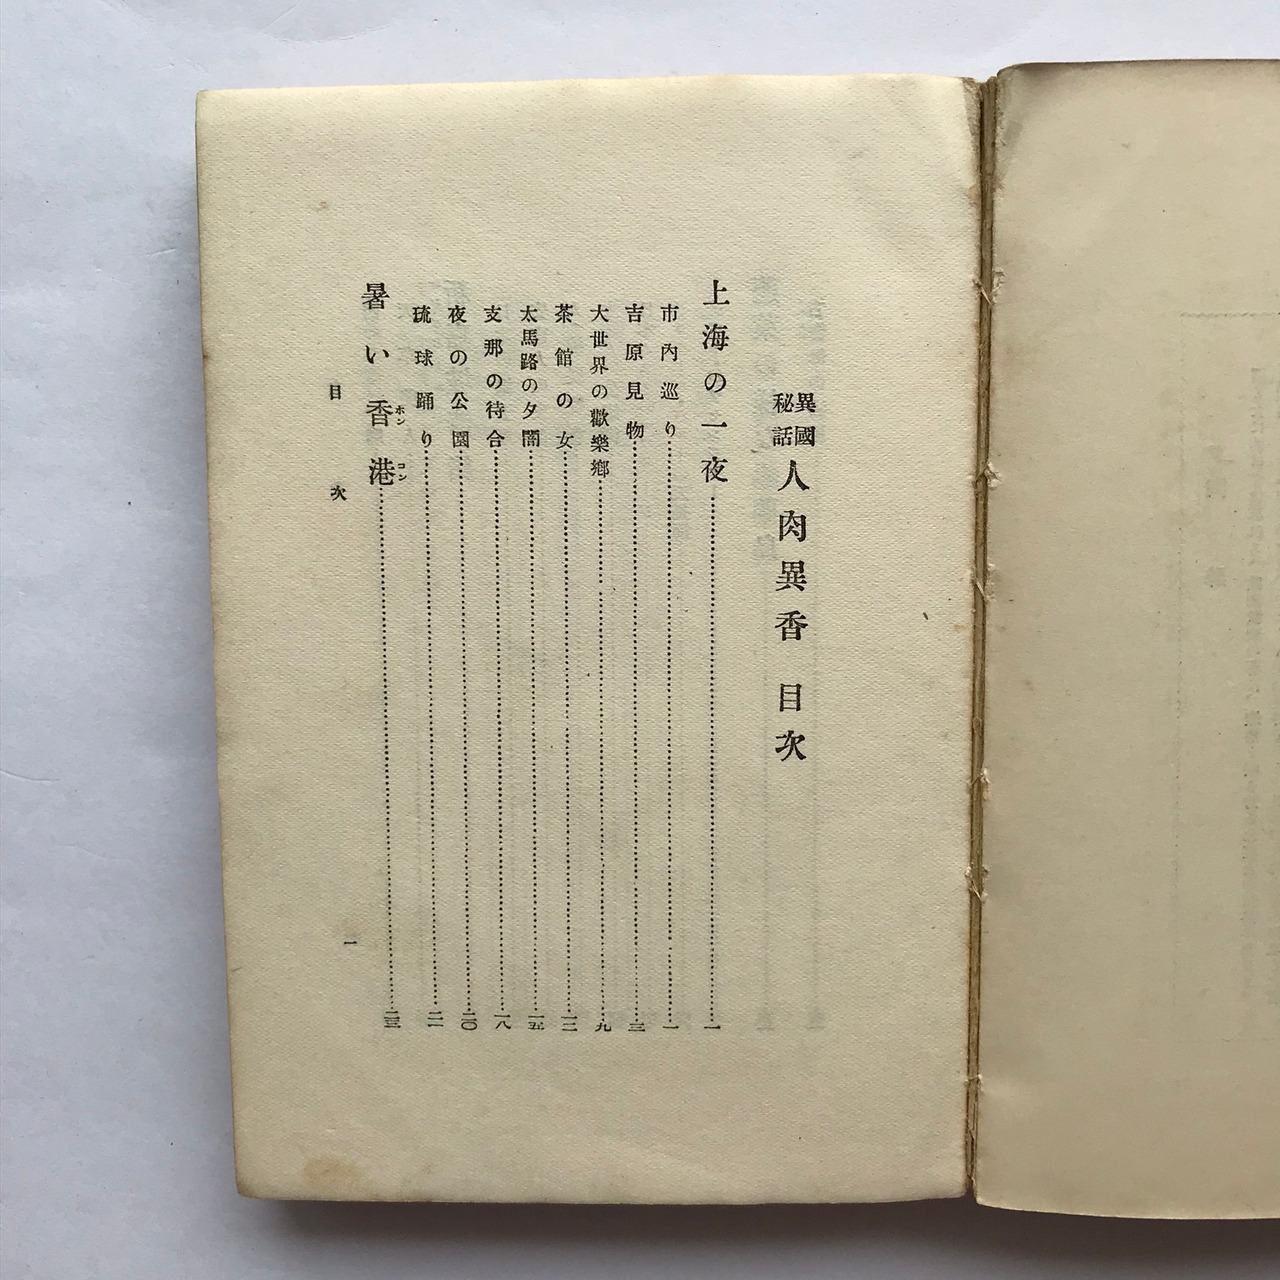 異國秘話 人肉異香 目次
上海の一夜……一
市內巡り……一
吉原見物……三
大世界の歡樂鄉……九
茶館の女……一二
太馬路の夕闇……一五
支那の待合……一八
夜の公園……二〇
琉球踊り……二一
暑い香港……二三
ホンコン
目次
一